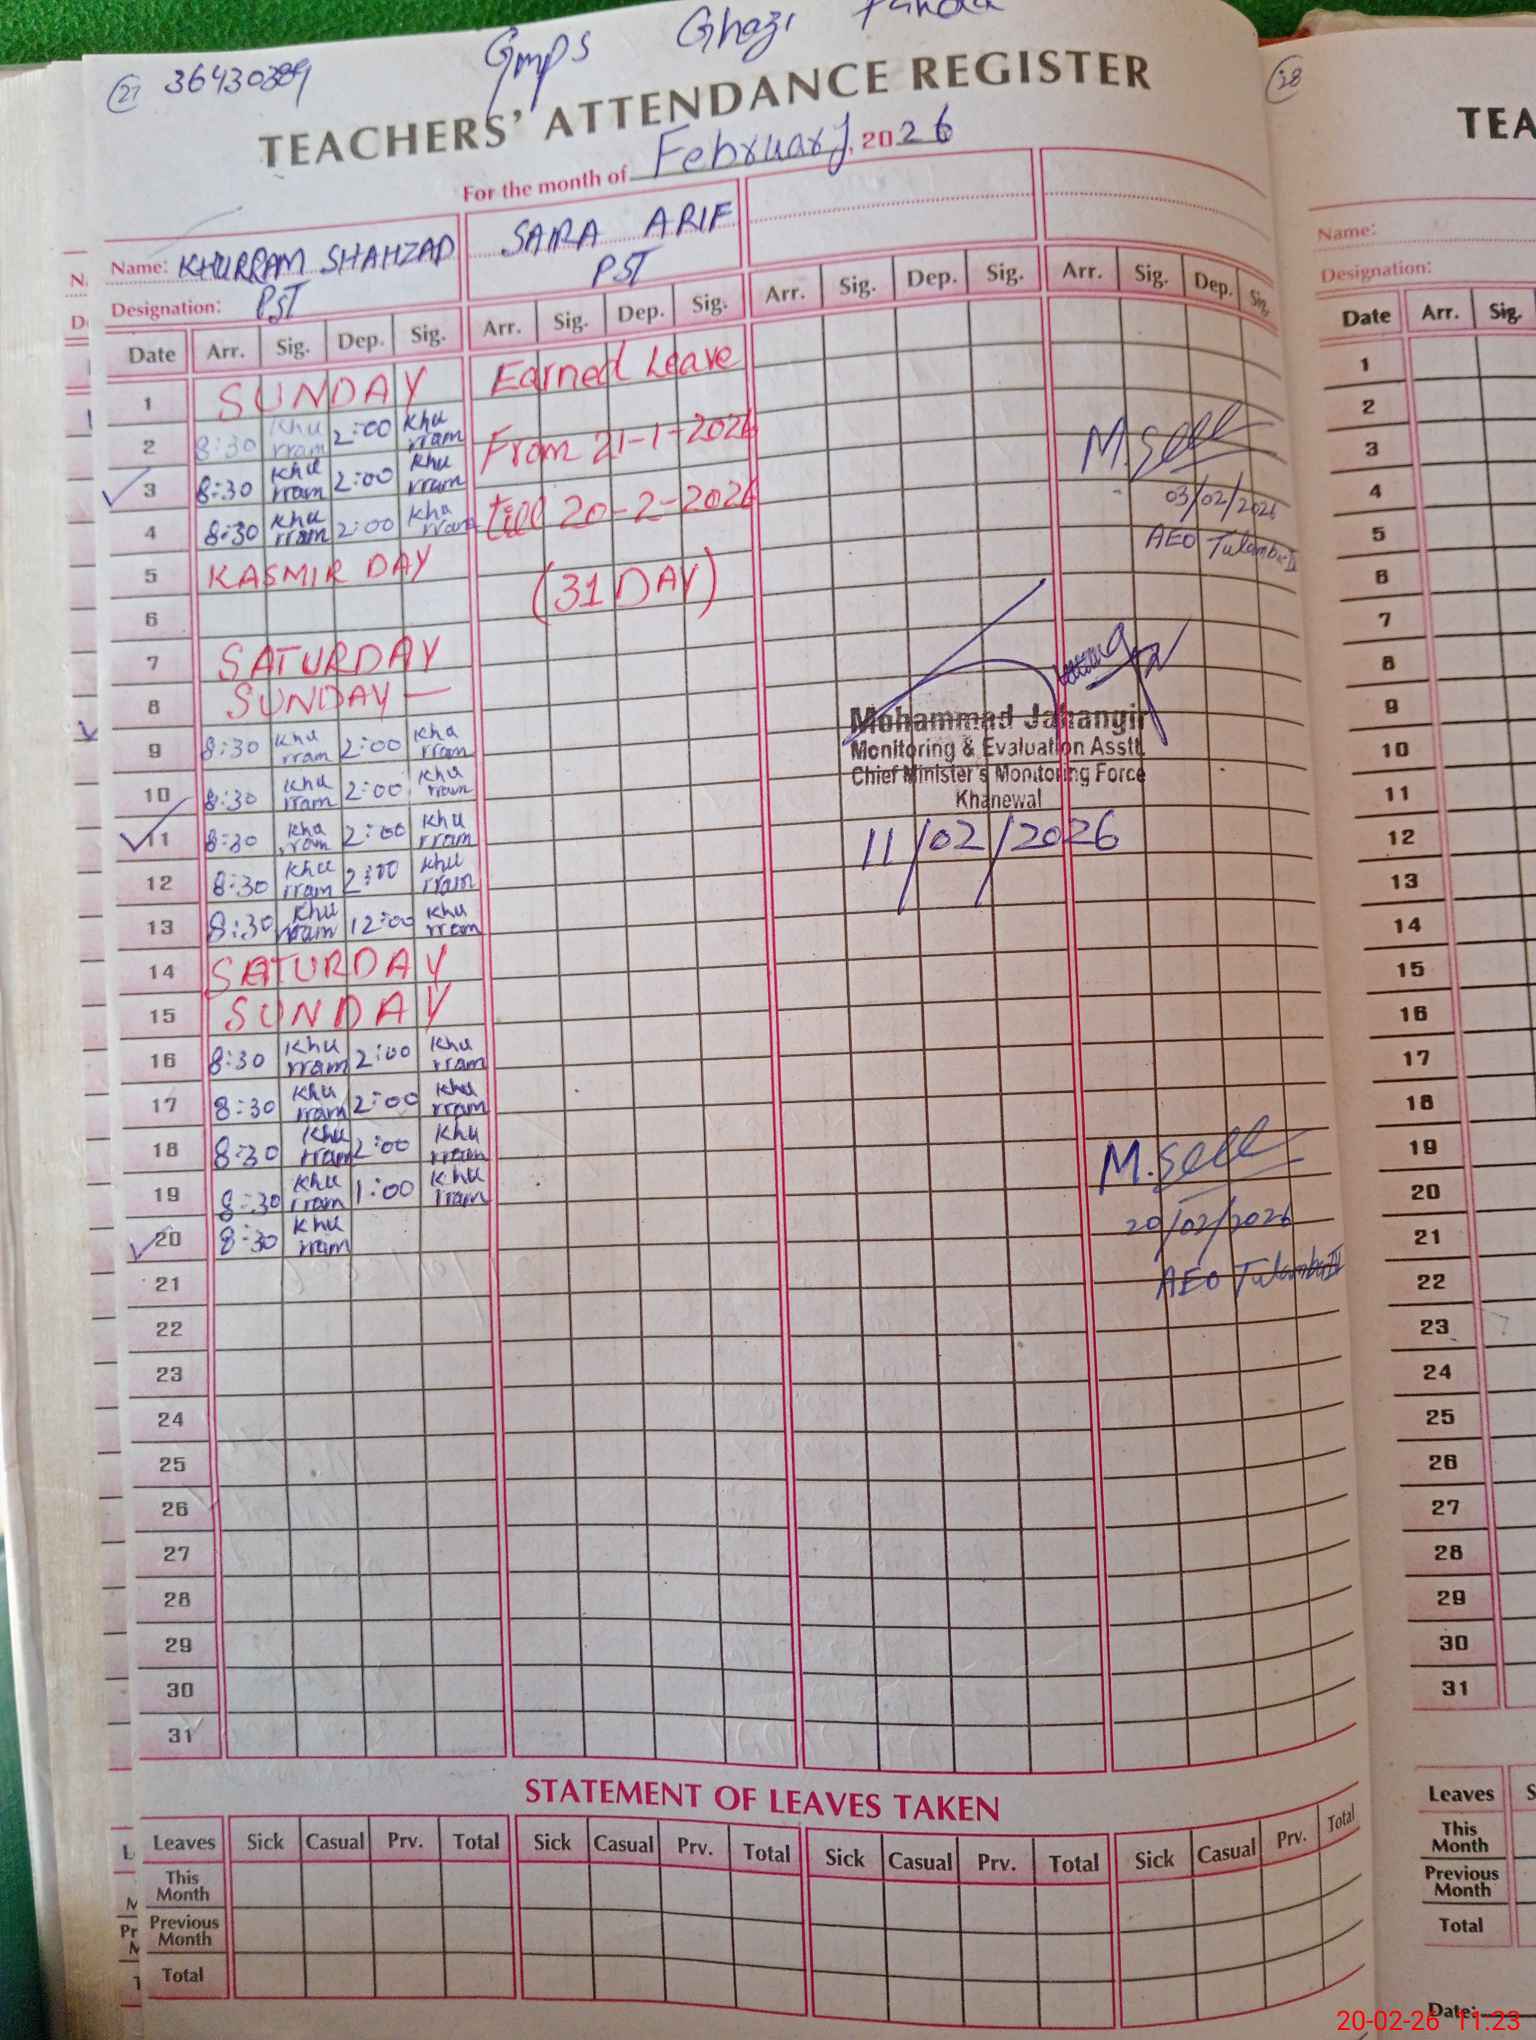 27 36430389 Gmps Ghazi
TEACHERS' ATTENDANCE REGISTER
For the month of February, 2026
Name: KHURRAM SHAHZAD SAIRA ARIF
Designation: PST PST
Date Arr. Sig. Dep. Sig. Arr. Sig. Dep. Sig. Arr. Sig. Dep. Sig. Arr. Sig. Dep. Sig.
1 SUNDAY Earned Leave
2 8:30 Khurram 2:00 Khurram From 21-1-2026
3 8:30 Khurram 2:00 Khurram till 20-2-2026
4 8:30 Khurram 2:00 Khurram
5 KASMIR DAY (31 DAY)
6
7 SATURDAY
8 SUNDAY
9 8:30 Khurram 2:00 Khurram
10 8:30 Khurram 2:00 Khurram
11 8:30 Khurram 2:00 Khurram
12 8:30 Khurram 2:00 Khurram
13 8:30 Khurram 12:00 Khurram
14 SATURDAY
15 SUNDAY
16 8:30 Khurram 2:00 Khurram
17 8:30 Khurram 2:00 Khurram
18 8:30 Khurram 2:00 Khurram
19 8:30 Khurram 1:00 Khurram
20 8:30 Khurram
21
22
23
24
25
26
27
28
29
30
31
03/02/2026
AEO Tulamba
Mohammad Jahangir
Monitoring & Evaluation Asstt.
Chief Minister's Monitoring Force
Khanewal
11/02/2026
20/02/2026
AEO Tulamba
STATEMENT OF LEAVES TAKEN
Leaves Sick Casual Prv. Total Sick Casual Prv. Total Sick Casual Prv. Total Sick Casual Prv. Total
This Month
Previous Month
Total
28
TEA
Name:
Designation:
Date Arr. Sig.
1
2
3
4
5
6
7
8
9
10
11
12
13
14
15
16
17
18
19
20
21
22
23
24
25
26
27
28
29
30
31
Leaves S
This Month
Previous Month
Total
Date:
20-02-26 11:23